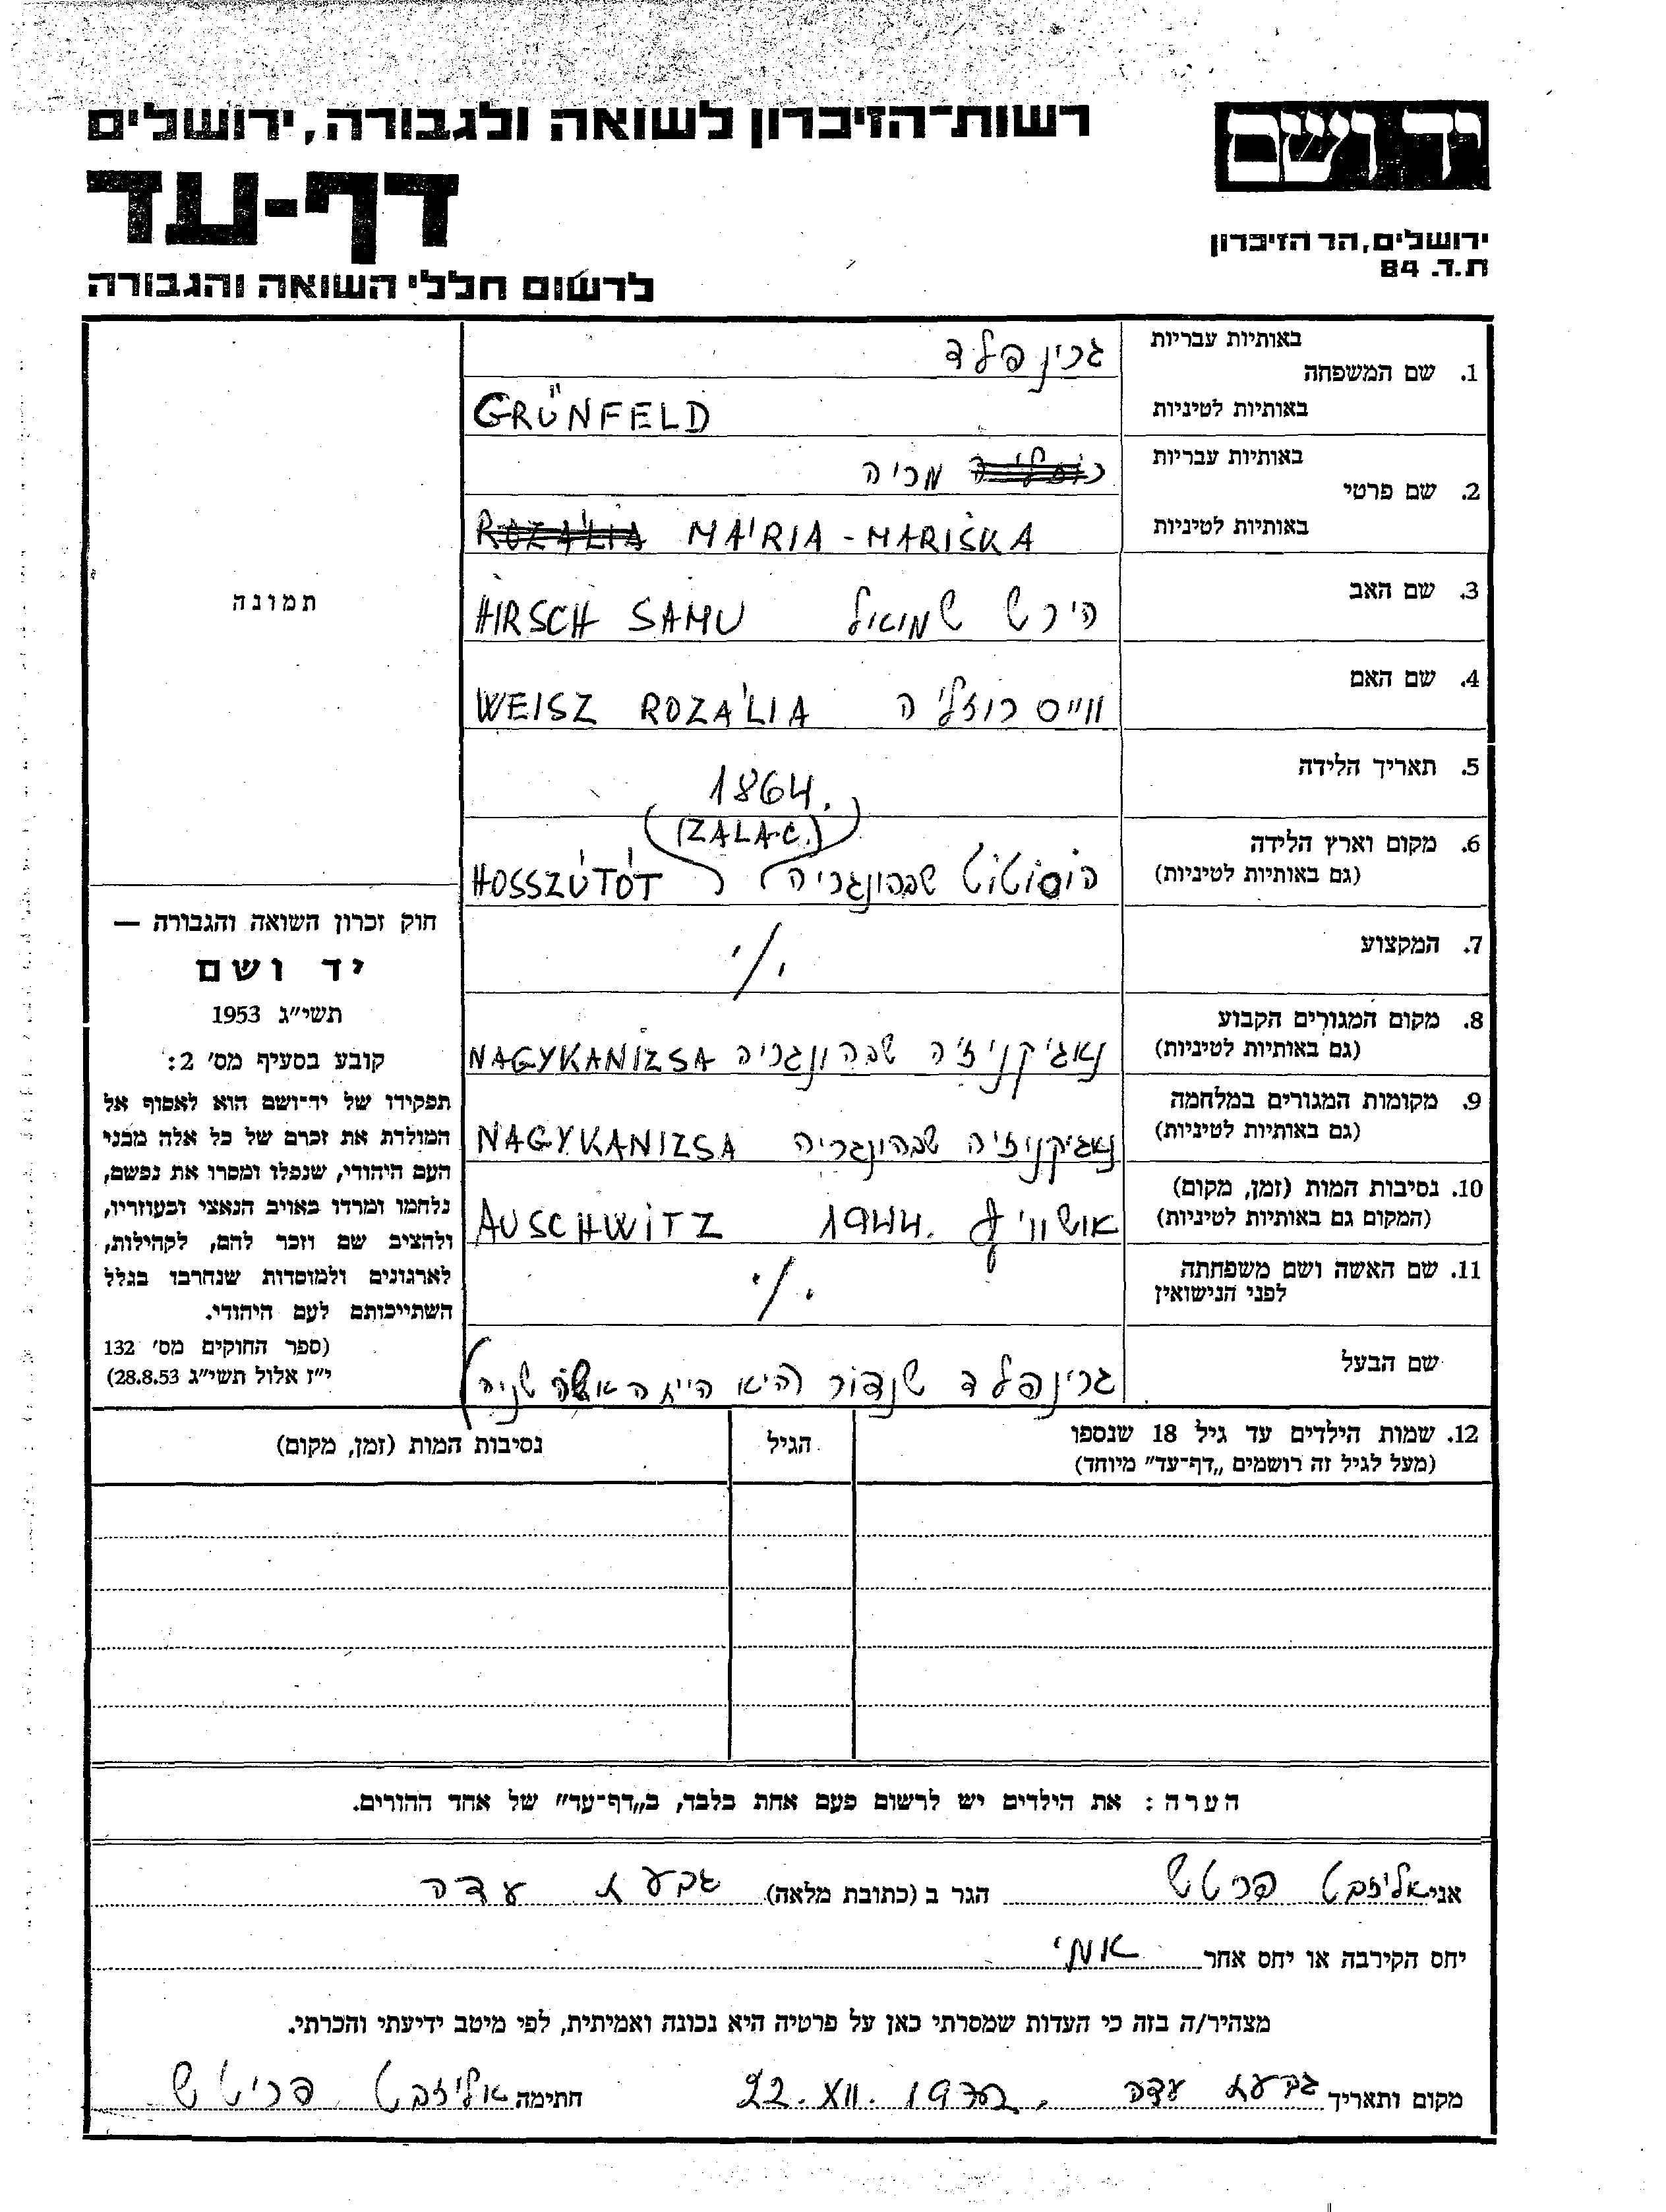 רשות־הזיכרון לשואה ולגבורה, ירושלים
יד ושם
דף-עד
ירושלים, הר הזיכרון
ת.ד. 84
לרשום חללי השואה והגבורה
באותיות עבריות גרינפלד
1. שם המשפחה
באותיות לטיניות GRÜNFELD
באותיות עבריות מריה
2. שם פרטי
באותיות לטיניות ROZÁLIA MÁRIA - MARISKA
תמונה
3. שם האב הירש שמואל HIRSCH SAMU
4. שם האם ווייס רוזליה WEISZ ROZÁLIA
5. תאריך הלידה 1864.
(ZALA C.)
6. מקום וארץ הלידה
(גם באותיות לטיניות) הוסוטוט שבהונגריה HOSSZÚTÓT
7. המקצוע ./.
8. מקום המגורים הקבוע
(גם באותיות לטיניות) נאג'קניז'ה שבהונגריה NAGYKANIZSA
9. מקומות המגורים במלחמה
(גם באותיות לטיניות) נאגיקניזיה שבהונגריה NAGYKANIZSA
10. נסיבות המות (זמן, מקום)
(המקום גם באותיות לטיניות) אושוויץ 1944. AUSCHWITZ
11. שם האשה ושם משפחתה
לפני הנישואין ./.
שם הבעל גרינפלד שנדור (היא היתה האשה שניה)
חוק זכרון השואה והגבורה —
יד ושם
תשי״ג 1953
קובע בסעיף מס׳ 2:
תפקידו של יד־ושם הוא לאסוף אל
המולדת את זכרם של כל אלה מבני
העם היהודי, שנפלו ומסרו את נפשם,
נלחמו ומרדו באויב הנאצי ובעוזריו,
ולהציב שם וזכר להם, לקהילות,
לארגונים ולמוסדות שנחרבו בגלל
השתייכותם לעם היהודי.
(ספר החוקים מס׳ 132
י״ז אלול תשי״ג 28.8.53)
12. שמות הילדים עד גיל 18 שנספו הגיל נסיבות המות (זמן, מקום)
(מעל לגיל זה רושמים „דף־עד״ מיוחד)
הערה: את הילדים יש לרשום פעם אחת בלבד, ב„דף־עד״ של אחד ההורים.
אני אליזבט פריטש הגר ב (כתובת מלאה) גבעת עדה
יחס הקירבה או יחס אחר אמי
מצהיר/ה בזה כי העדות שמסרתי כאן על פרטיה היא נכונה ואמיתית, לפי מיטב ידיעתי והכרתי.
מקום ותאריך גבעת עדה, 22.XII.1972 חתימה אליזבט פריטש